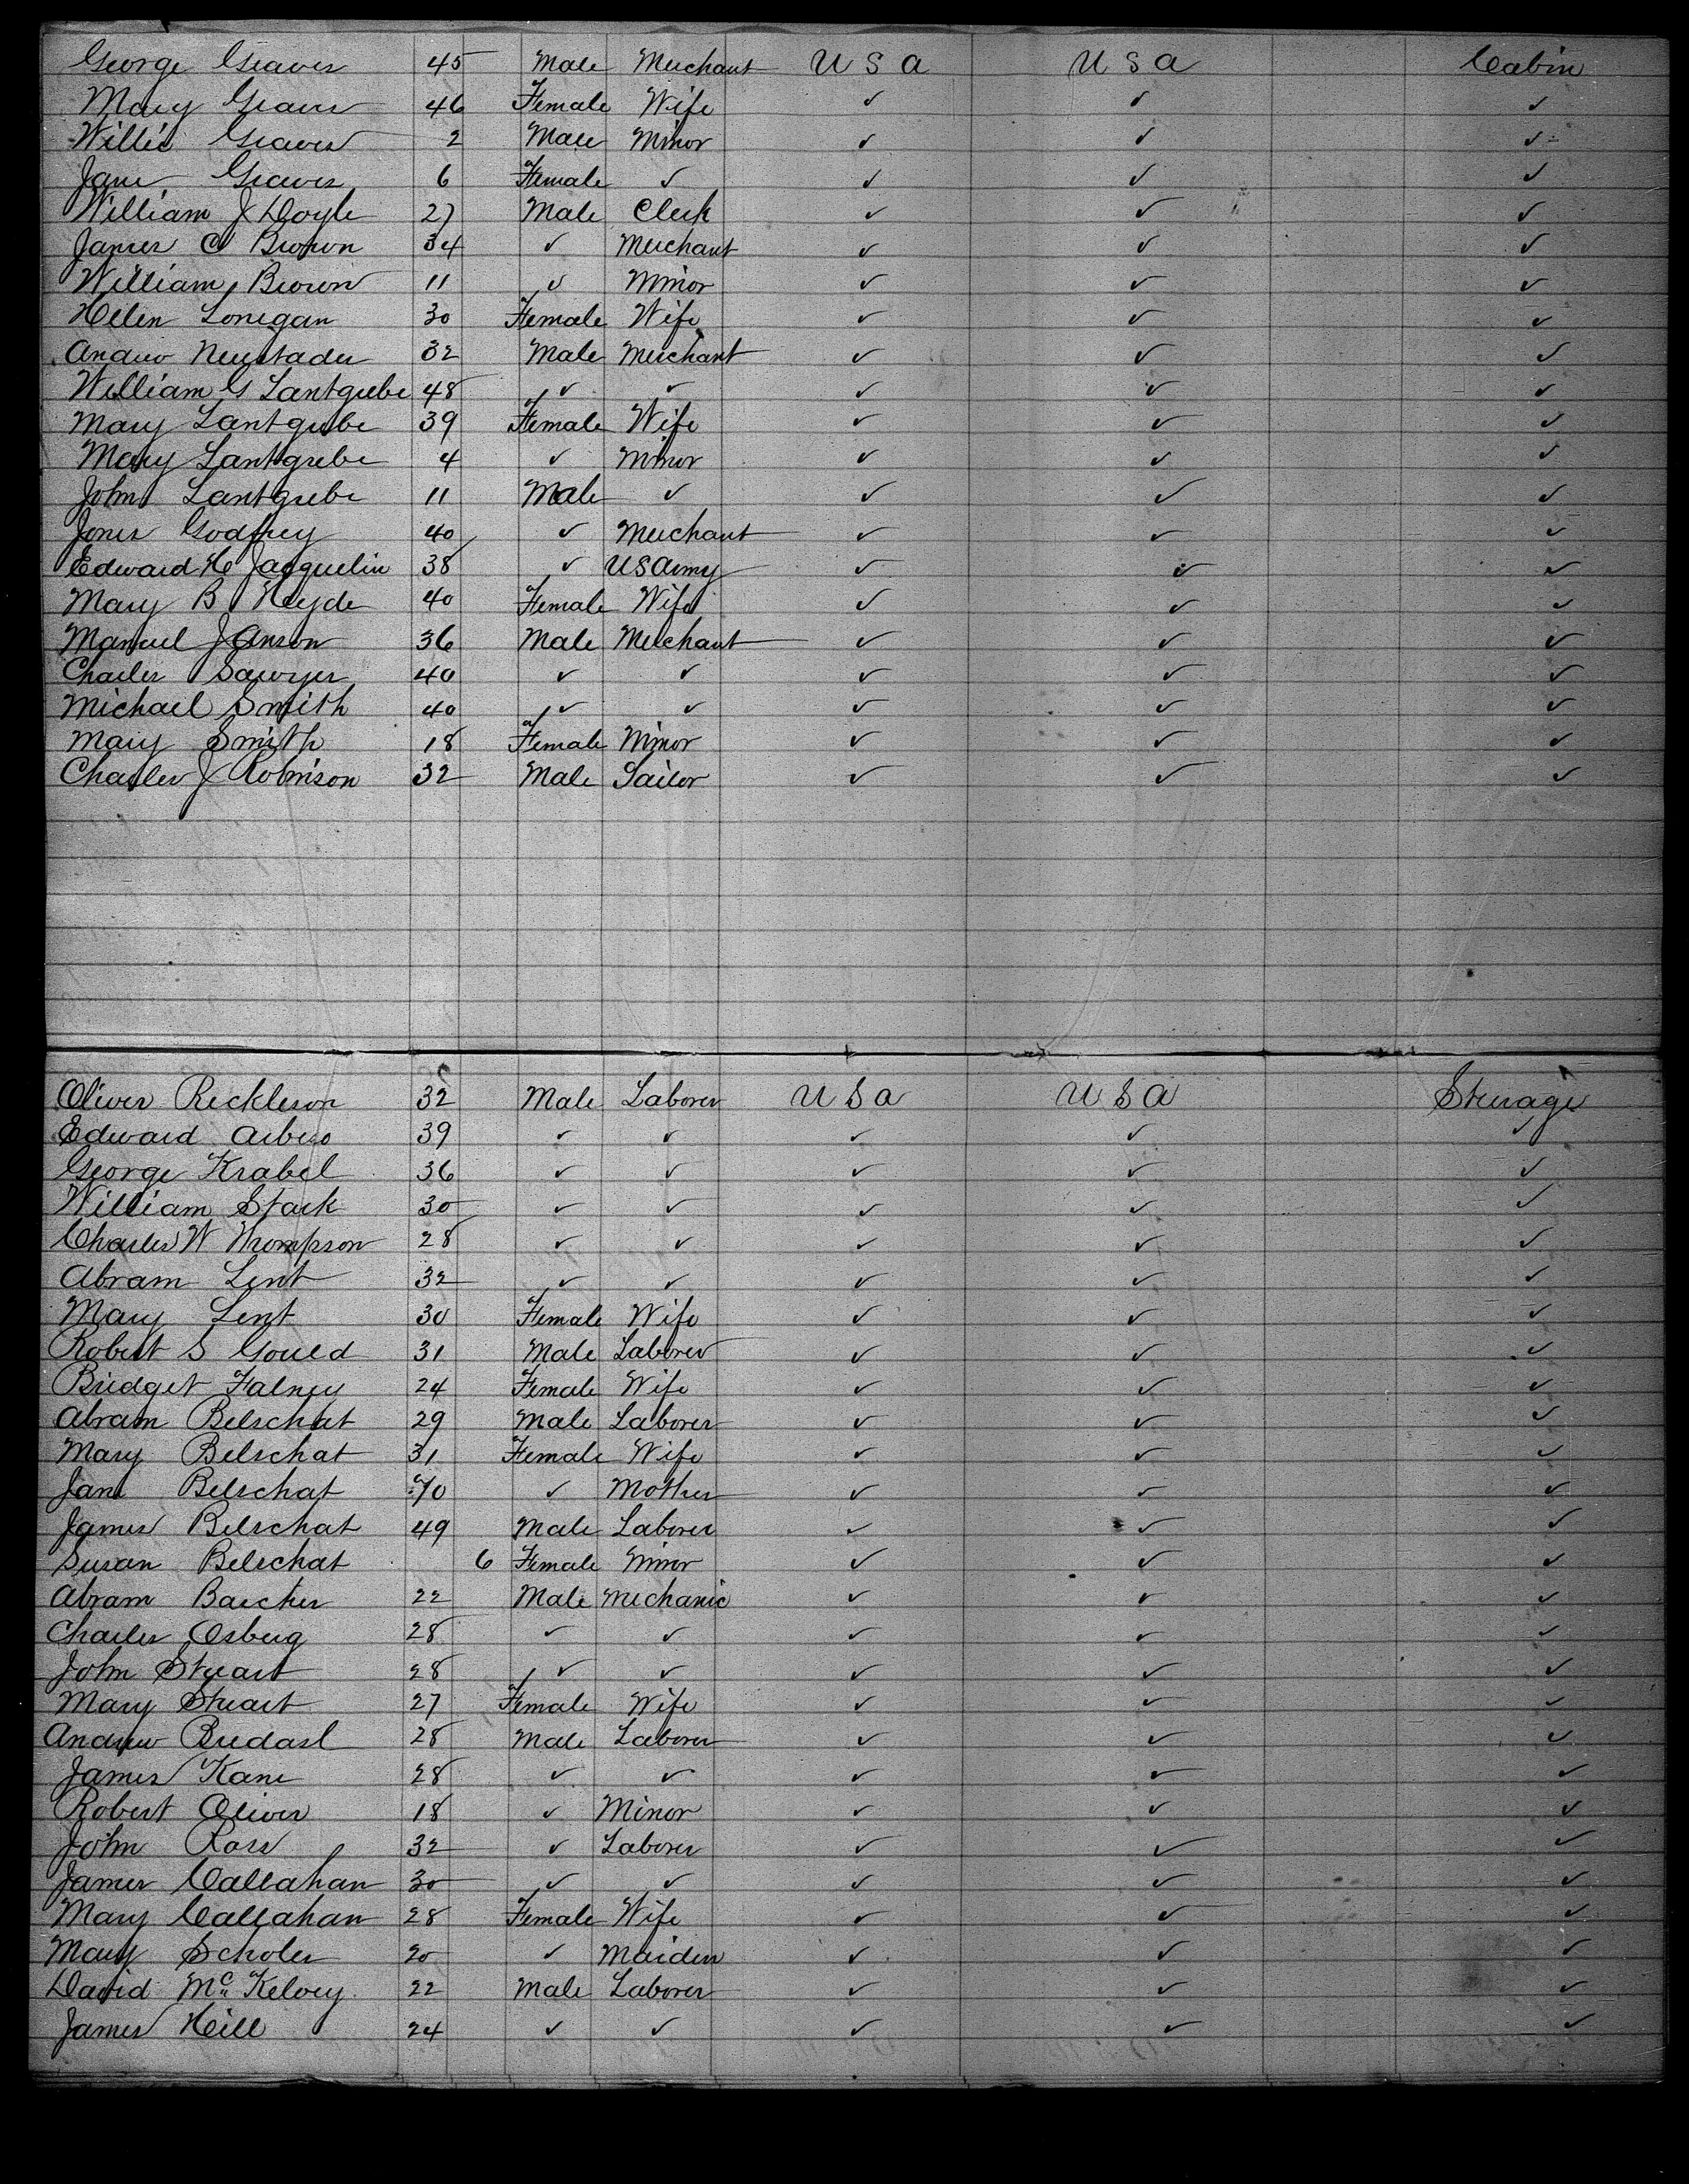 George Graves 45 Male Merchant U S A U S A Cabin
Mary Graves 46 Female Wife ✓ ✓ ✓
Willie Graves 2 Male Minor ✓ ✓ ✓
Jane Graves 6 Female ✓ ✓ ✓ ✓
William J Doyle 27 Male Clerk ✓ ✓ ✓
James C Brown 34 ✓ Merchant ✓ ✓ ✓
William Brown 11 ✓ Minor ✓ ✓ ✓
Helen Lonegan 30 Female Wife ✓ ✓ ✓
Andrew 32 Male Merchant ✓ ✓ ✓
William G Lantgrebe 48 ✓ ✓ ✓ ✓ ✓
Mary Lantgrebe 39 Female Wife ✓ ✓ ✓
Mary Lantgrebe 4 ✓ Minor ✓ ✓ ✓
John Lantgrebe 11 Male ✓ ✓ ✓ ✓
Jones Godfrey 40 ✓ Merchant ✓ ✓ ✓
Edward H Jacquelin 38 ✓ US Army ✓ ✓ ✓
Mary B Heyde 40 Female Wife ✓ ✓ ✓
Manuel J Anson 36 Male Merchant ✓ ✓ ✓
Charles Sawyer 40 ✓ ✓ ✓ ✓ ✓
Michael Smith 40 ✓ ✓ ✓ ✓ ✓
Mary Smith 18 Female Minor ✓ ✓ ✓
Charles J Robinson 32 Male Sailor ✓ ✓ ✓
Oliver Reckleson 32 Male Laborer U S A U S A Sterage
Edward 39 ✓ ✓ ✓ ✓ ✓
George Krabel 36 ✓ ✓ ✓ ✓ ✓
William Stark 30 ✓ ✓ ✓ ✓ ✓
Charles W Thompson 28 ✓ ✓ ✓ ✓ ✓
Abram Lent 32 ✓ ✓ ✓ ✓ ✓
Mary Lent 30 Female Wife ✓ ✓ ✓
Robert S Gould 31 Male Laborer ✓ ✓ ✓
Bridget Falney 24 Female Wife ✓ ✓ ✓
Abram Belschat 29 Male Laborer ✓ ✓ ✓
Mary Belschat 31 Female Wife ✓ ✓ ✓
Jane Belschat 70 ✓ Mother ✓ ✓ ✓
James Belschat 49 Male Laborer ✓ ✓ ✓
Susan Belschat 6 Female Minor ✓ ✓ ✓
Abram Barcher 22 Male Mechanic ✓ ✓ ✓
Charles Osberg 28 ✓ ✓ ✓ ✓ ✓
John Stuart 28 ✓ ✓ ✓ ✓ ✓
Mary Stuart 27 Female Wife ✓ ✓ ✓
Andrew Bredasl 28 Male Laborer ✓ ✓ ✓
James Kane 28 ✓ ✓ ✓ ✓ ✓
Robert Oliver 18 ✓ Minor ✓ ✓ ✓
John Ross 32 ✓ Laborer ✓ ✓ ✓
James Callahan 30 ✓ ✓ ✓ ✓ ✓
Mary Callahan 28 Female Wife ✓ ✓ ✓
Mary Scholer 20 ✓ Maiden ✓ ✓ ✓
David McKelvey 22 Male Laborer ✓ ✓ ✓
James Hill 24 ✓ ✓ ✓ ✓ ✓